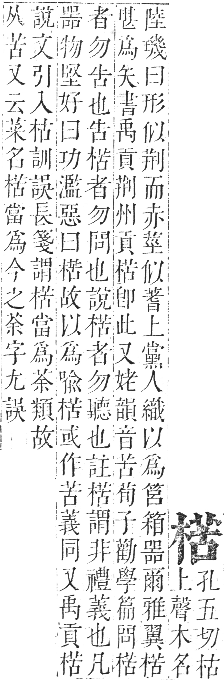 楛
孔五切枯
上聲木名
陸璣曰形似荆而赤莖似蓍上黨人織以爲筥箱器爾雅翼楛
堪爲矢書禹貢荆州貢楛卽此又姥韻音苦荀子勸學篇問楛
者勿告也告楛者勿問也說楛者勿聽也註楛謂非禮義也凡
器物堅好曰功濫惡曰楛故以爲喩楛或作苦義同又禹貢楛
說文引入枯訓誤長箋謂楛當爲茶類故
从苦又云菜名楛當爲今之荼字尤誤